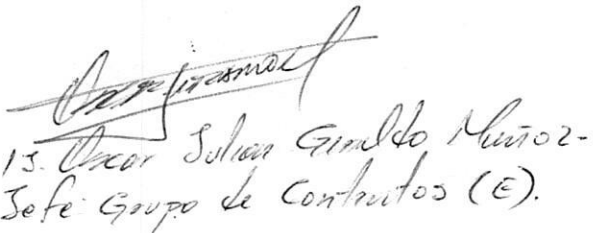 IJ. Oscar Julian Giraldo Muñoz-
Jefe Grupo de Contratos (E).